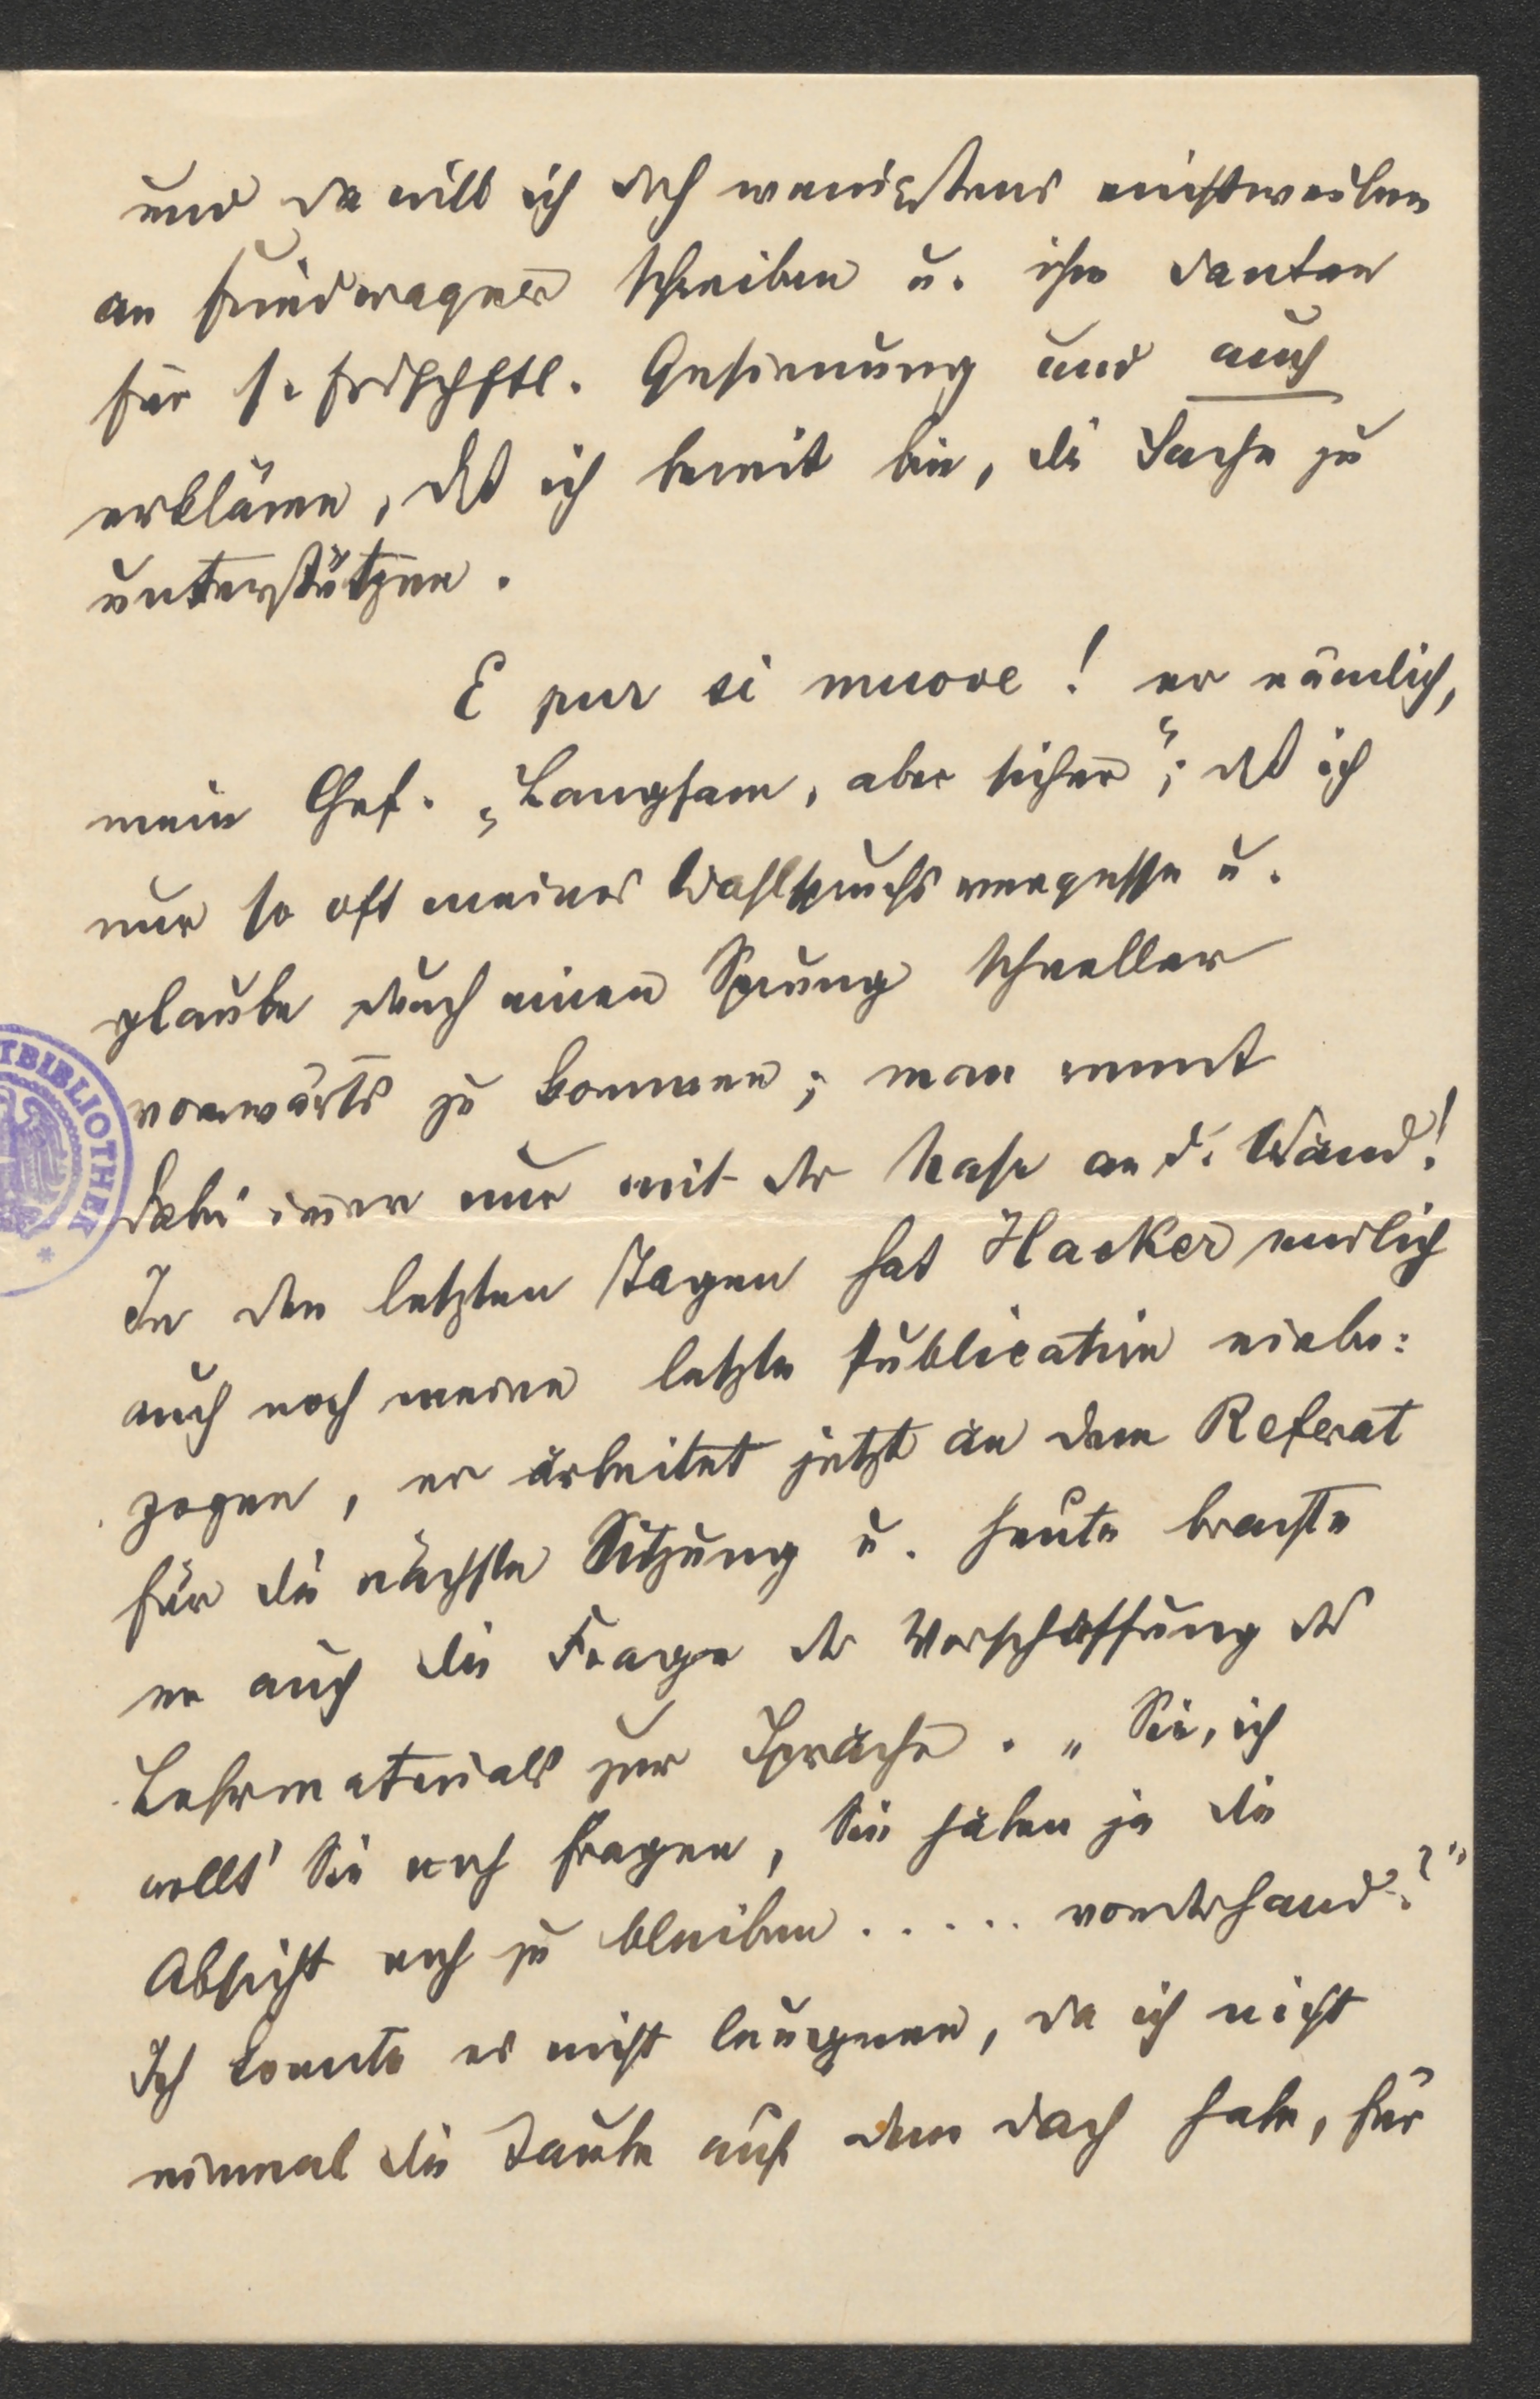 und da will ich doch wenigstens einstweilen
an Friedwagner schreiben u. ihm danken
für s. frdschftl. Gesinnung und auch
erklären, daß ich bereit bin, die Sache zu
unterstützen.
E pur si muove! er nämlich,
mein Chef. „Langsam, aber sicher“; daß ich
nur so oft meines Wahlspruchs vergesse u.
glaube durch einen Sprung schneller
vorwärts zu kommen; man rennt
dabei immer nur mit der Nase an d. Wand!
In den letzten Tagen hat Hacker endlich
auch noch meine letzte Publication einbe:
zogen, er arbeitet jetzt an dem Referat
für die nächste Sitzung u. heute brachte
er auch die Frage der Vorschaffung des
Lehrmaterials zur Sprache. „Sie, ich
wollt' Sie noch fragen, Sie haben ja die
Absicht noch zu bleiben ..... vorderhand?“
Ich konnte es nicht leugnen, da ich nicht
einmal die Taube auf dem Dach habe, für
TBIBLIOTHEK *